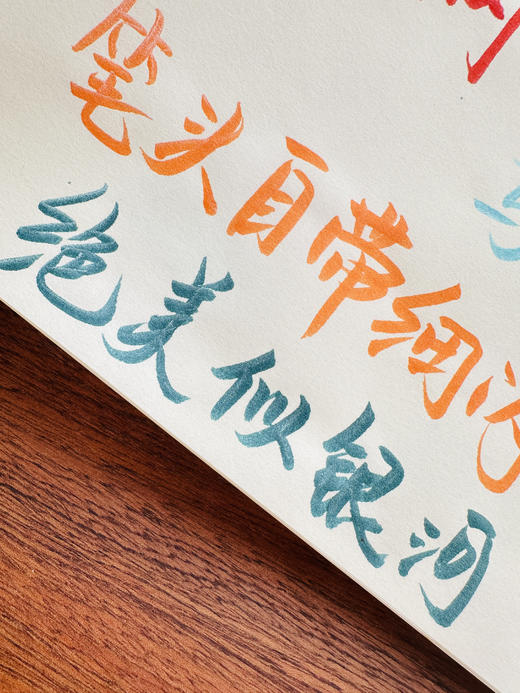 笔头自带细
绝美似银河